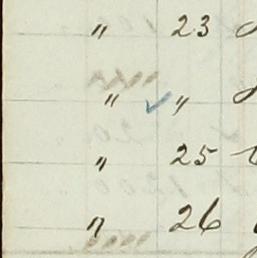 " 23
" "
" 25
" 26